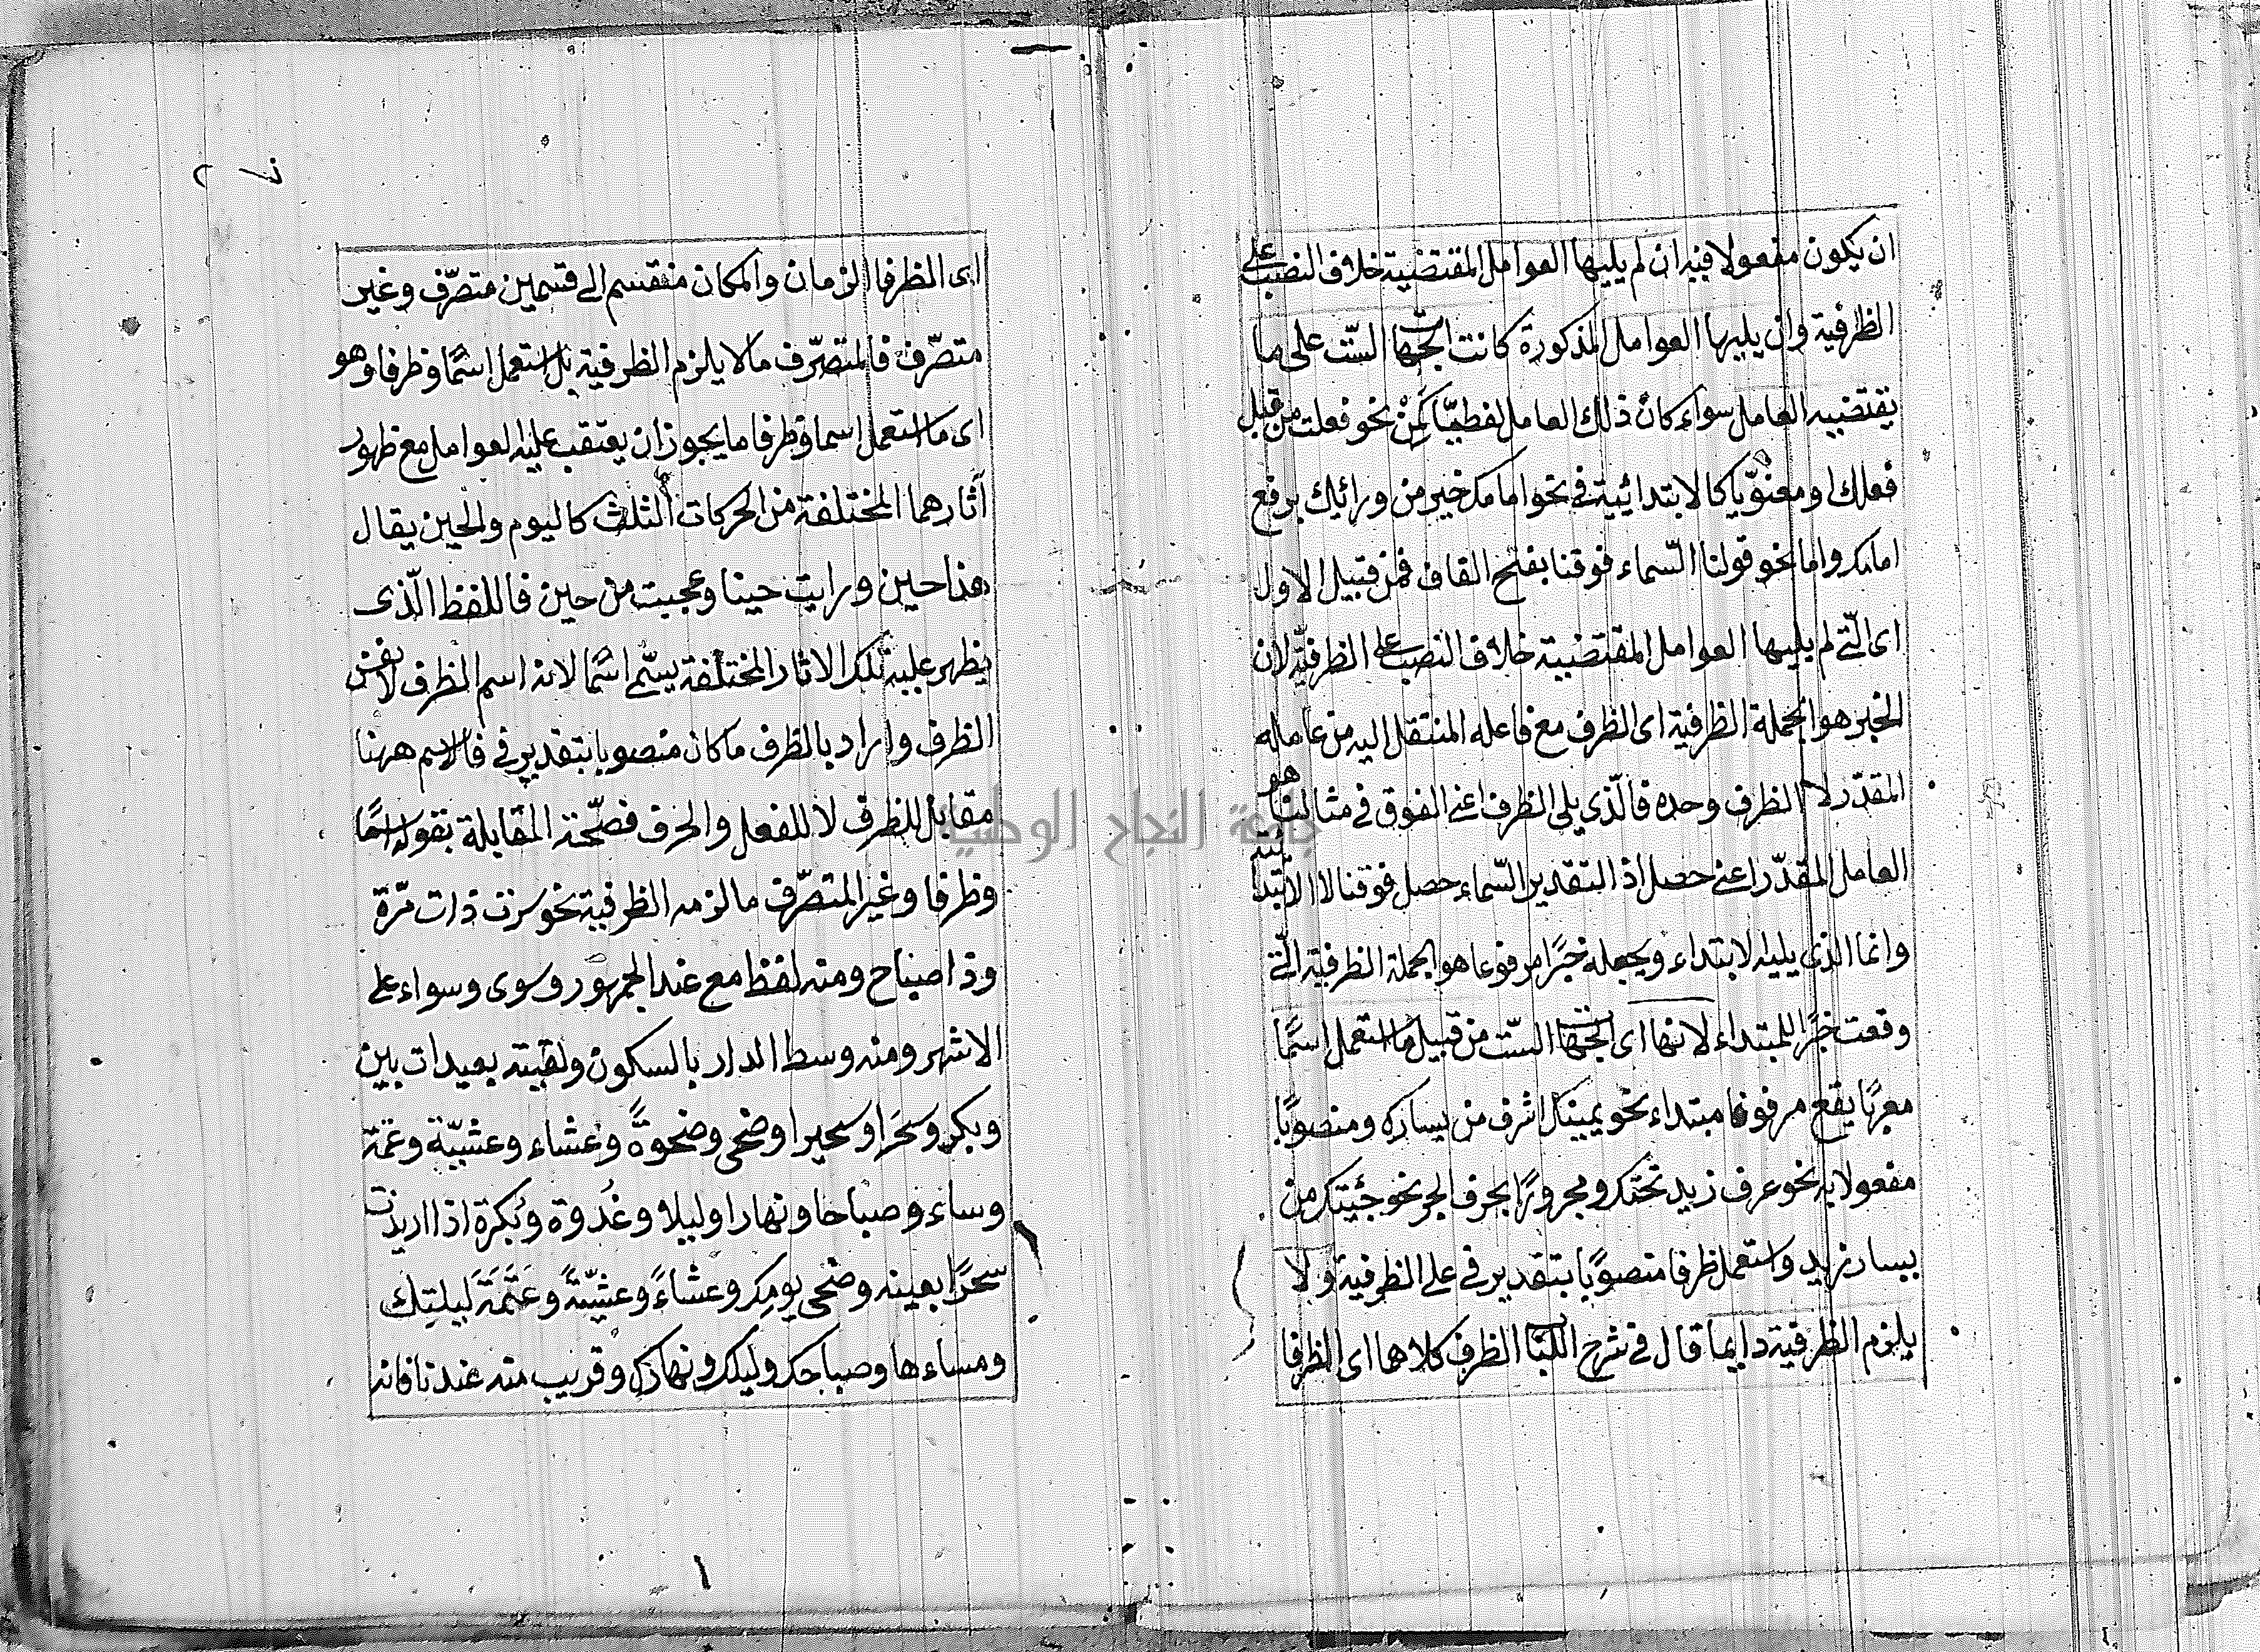 ان يكون مفعولا فيه ان لم يليها العوامل المقتضية خلاف النصب على
الظرفية وان يليها العوامل المذكورة كانت الجهات الست على ما
يقتضيه العامل سواء كان ذلك العامل لفظيّا كمِنْ نحو فعلت من قبل
فعلك او معنويّا كالابتدائية في نحو امامك خير من ورائك برفع
امامك واما نحو قولنا السّماء فوقنا بفتح القاف فمن قبيل الاول
اى الّتي لم يليها العوامل المقتضية خلاف النصب على الظرفيّة لان
الخبر هو الجملة الظرفية اى الظرف مع فاعله المنتقل اليه من عامله
المقدّر لا الظرف وحده فالّذي يلى الظرف اعني الفوق في مثالنا هو
العامل المقدّر اعني حصل اذ التقدير السّماء حصل فوقنا لا الابتدائية
وانما الذى يليه لابتداء ويجعله خبرًا مرفوعا هو الجملة الظرفية الّتي
وقعت خبرًا للمبتداء لانها اى الجهات السّت من قبيل ما استعمل اسمًا
معربًا يقع مرفوعا مبتداء نحو يمينك اشرف من يسارك ومنصوبًا
مفعولا به نحو عرف زيد تحتك ومجرورًا بحرف الجر نحو جئيتك من
يسار زيد واستعمل ظرفا منصوبًا بتقدير في على الظرفية ولا
يلزم الظرفية دايما قال في شرح اللبّ الظرف كلاهما اى الظرفا
اى الظرفا الزمان والمكان منقسم الى قسمين متصرّف وغير
متصرّف فالمتصرّف ما لا يلزم الظرفية بل استعمل اسمًا وظرفا وهو
اى ما استعمل اسما وظرفا ما يجوز ان يعتقب عليه العوامل مع ظهور
آثارهما المختلفة من الحركات الثلث كاليوم والحين يقال
هذا حين ورايت حينا وعجبت من حين فاللفظ الّذى
يظهر عليه تلك الاثار المختلفة يسمّى اسمًا لانه اسم الظرف لا نفس
الظرف واراد بالظرف ما كان منصوبا بتقدير في فالاسم ههنا
مقابل للظرف لا للفعل والحرف فصّحة المقابلة بقوله اسمًا
وظرفا وغير المتصرّف ما لزمه الظرفية نحو سرت ذات مرّة
وذا صباح ومنه لفظ مع عند الجمهور وسوى وسواء على
الاشهر ومنه وسط الدار بالسكون ولقيته بعيدات بين
وبكر وسحَرا وسحيرا وضحى وضحوةً وعشاء وعشيّة وعتمة
ومساء وصباحا ونهارا وليلا وغُدوة وبُكرة اذا اريدت
سحرًا بعينه وضحى يومِك وعشاءً وعشيّةً وعَتَمَةَ لَيلتِك
ومساءها وصباحك وليلك ونهارك وقريب منه عندنا فانه
جامعة النجاح الوطنية